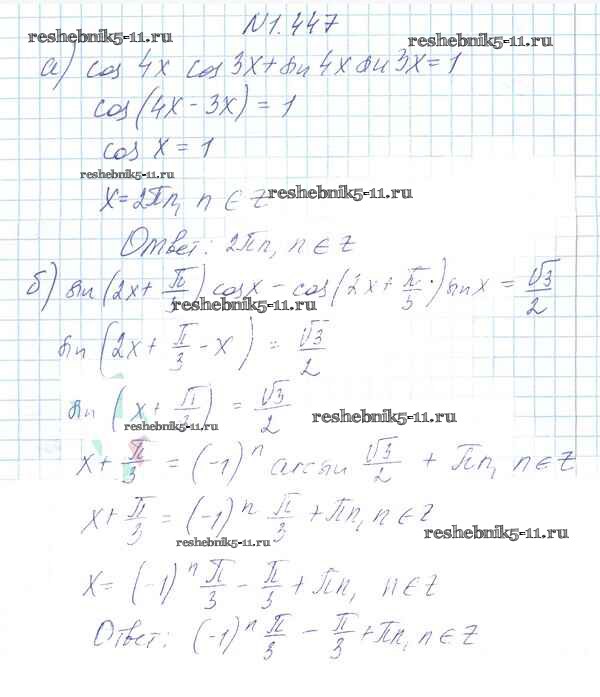 N1.447
reshebnik5-11.ru reshebnik5-11.ru
а) cos 4x cos 3x + sin 4x sin 3x = 1
cos(4x - 3x) = 1
cos x = 1
reshebnik5-11.ru
x = 2πn, n ∈ Z reshebnik5-11.ru
Ответ: 2πn, n ∈ Z
б) sin(2x + π/3) cos x - cos(2x + π/3) sin x = √3/2
reshebnik5-11.ru
sin(2x + π/3 - x) = √3/2
sin(x + π/3) = √3/2
reshebnik5-11.ru reshebnik5-11.ru
x + π/3 = (-1)^n arcsin √3/2 + πn, n ∈ Z
x + π/3 = (-1)^n π/3 + πn, n ∈ Z
reshebnik5-11.ru reshebnik5-11.ru
x = (-1)^n π/3 - π/3 + πn, n ∈ Z
Ответ: (-1)^n π/3 - π/3 + πn, n ∈ Z